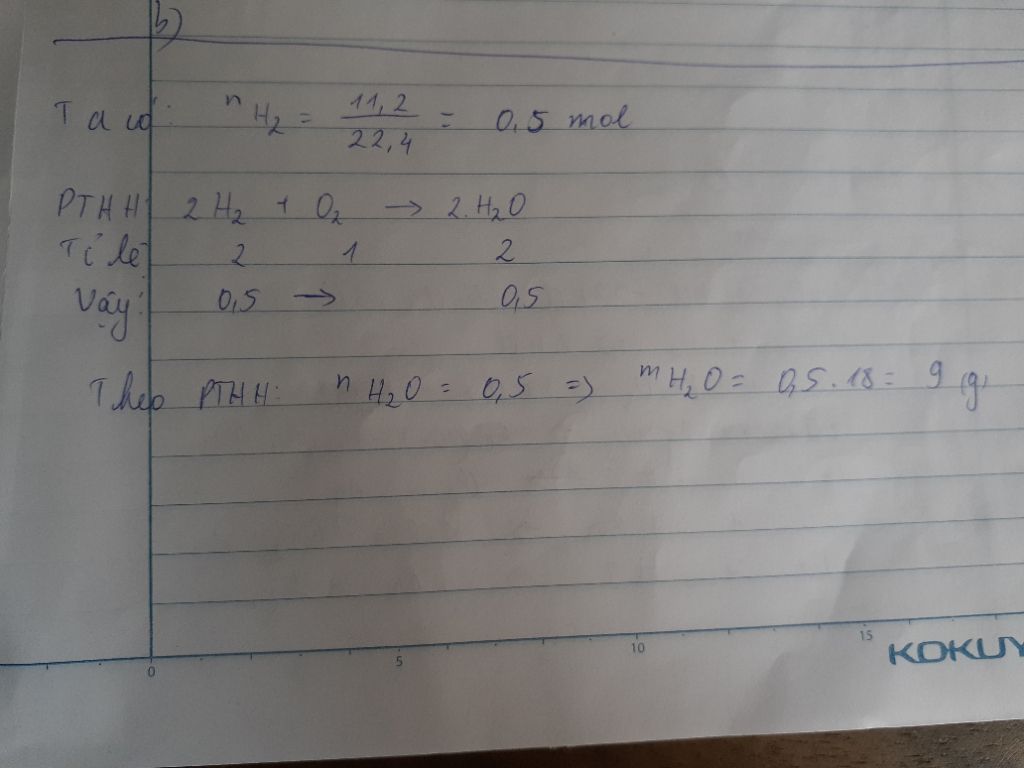 b)
Ta có: nH₂ = 11,2 / 22,4 = 0,5 mol
PTHH: 2H₂ + O₂ → 2.H₂O
Tỉ lệ 2 1 2
Vậy: 0,5 → 0,5
Theo PTHH: nH₂O = 0,5 => mH₂O = 0,5.18 = 9 (g)
0 5 10 15
KOKUY